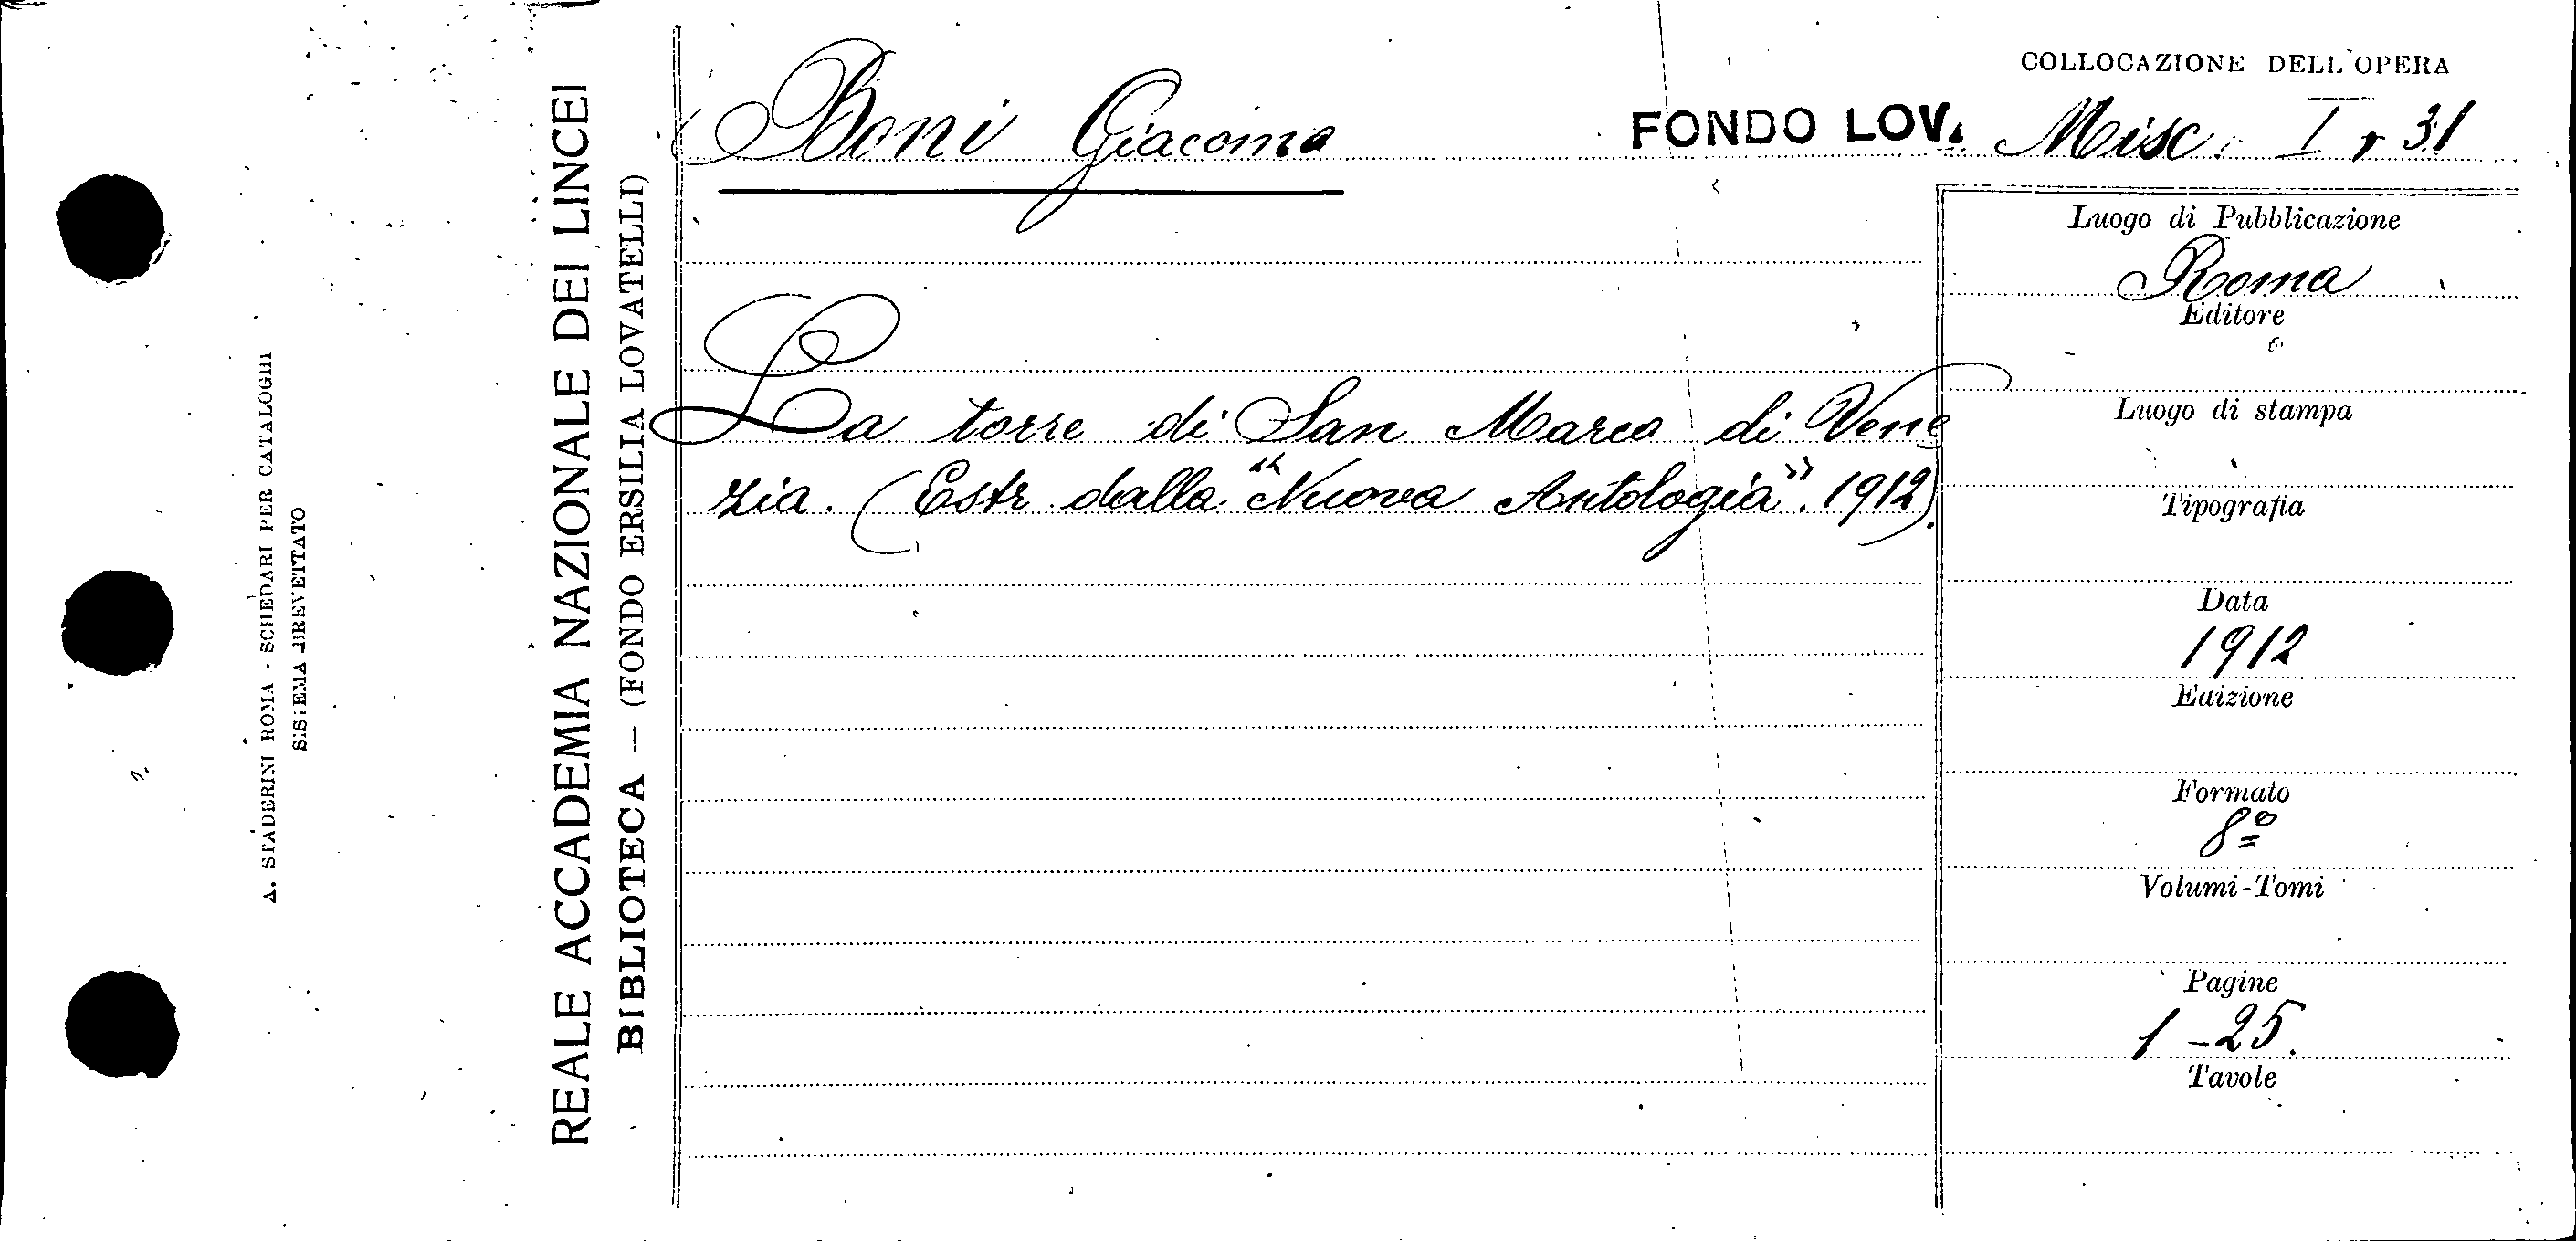 A. STADERINI ROMA - SCHEDARI PER CATALOGHI
SISTEMA BREVETTATO
REALE ACCADEMIA NAZIONALE DEI LINCEI
BIBLIOTECA — (FONDO ERSILIA LOVATELLI)
Boni Giacomo
COLLOCAZIONE DELL'OPERA
FONDO LOV. Misc. I, 31
La torre di San Marco di Vene
zia. (Estr. dalla "Nuova Antologia". 1912).
Luogo di Pubblicazione
Roma
Editore
Luogo di stampa
Tipografia
Data
1912
Edizione
Formato
8º
Volumi-Tomi
Pagine
1-25.
Tavole